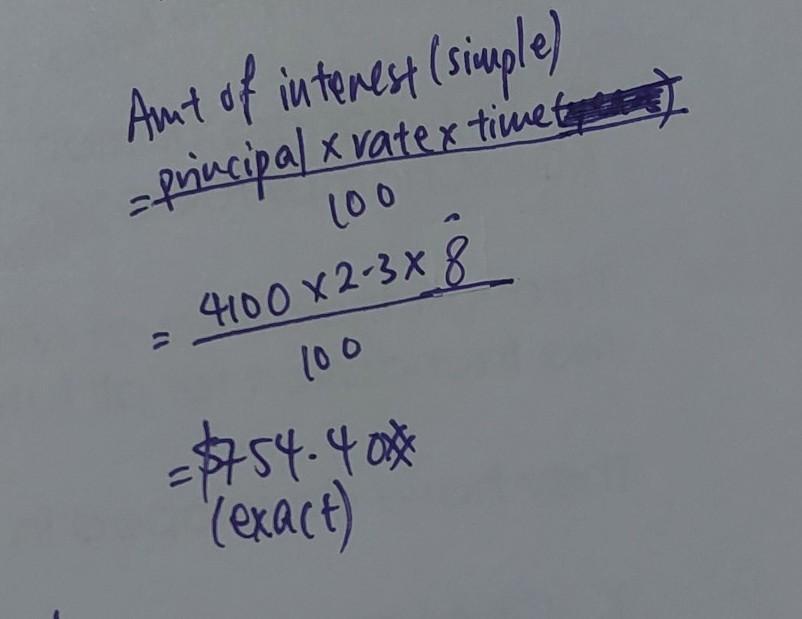 Amt of interest (simple)
= principal x rate x time
100
= 4100 x 2.3 x 8
100
= $754.40
(exact)